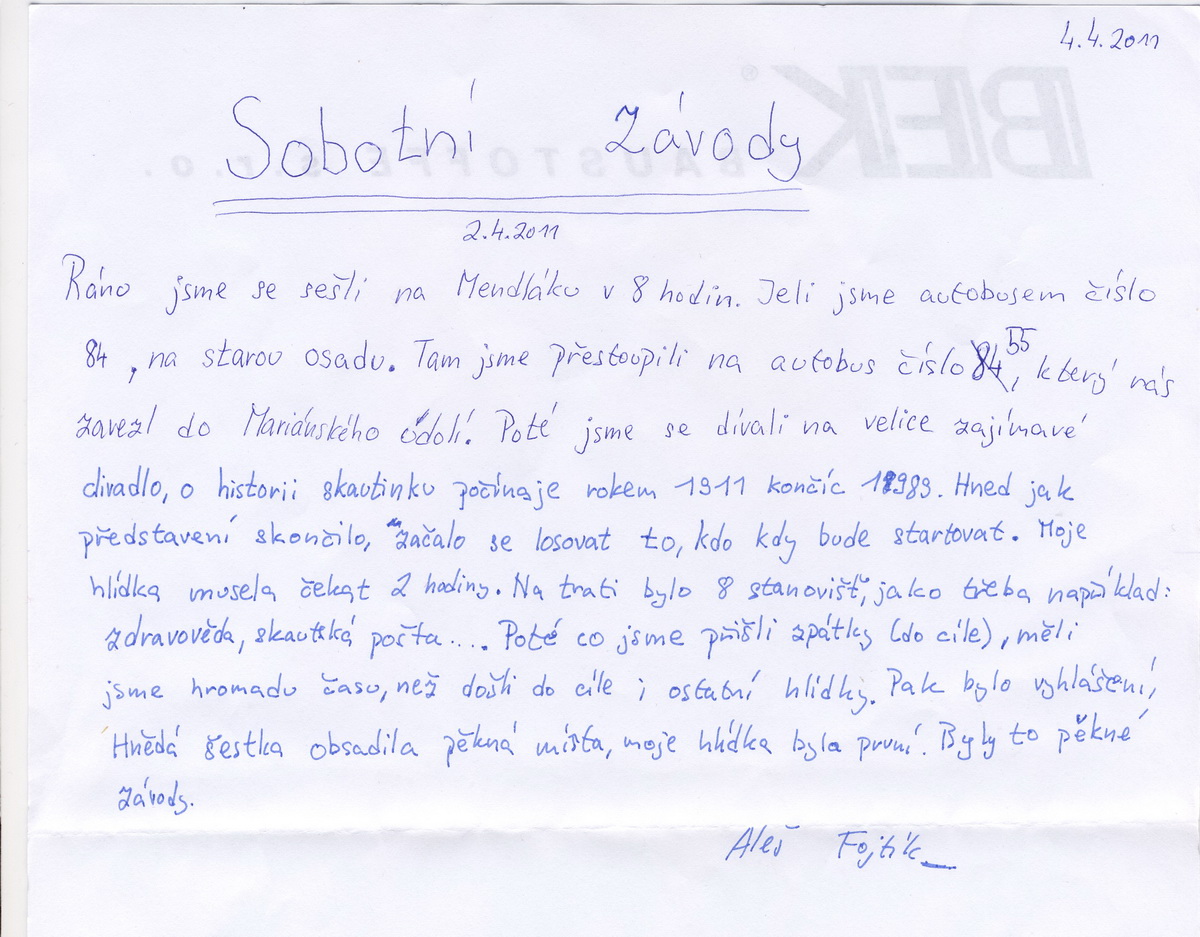 4.4.2011
BEK®
BAUSTOFFE s.r.o.
Sobotní závody
2.4.2011
Ráno jsme se sešli na Mendláku v 8 hodin. Jeli jsme autobusem číslo
84, na starou osadu. Tam jsme přestoupili na autobus číslo 84 55, který nás
zavezl do Mariánského údolí. Poté jsme se dívali na velice zajímavé
divadlo, o historii skautinku počínaje rokem 1911 končíc 1989. Hned jak
představení skončilo, začalo se losovat to, kdo kdy bude startovat. Moje
hlídka musela čekat 2 hodiny. Na trati bylo 8 stanovišť, jako třeba například:
zdravověda, skautská pošta.... Poté co jsme přišli zpátky (do cíle), měli
jsme hromadu času, než došli do cíle i ostatní hlídky. Pak bylo vyhlášení,
Hnědá šestka obsadila pěkná místa, moje hlídka byla první. Byly to pěkné
závody.
Aleš Fojtík